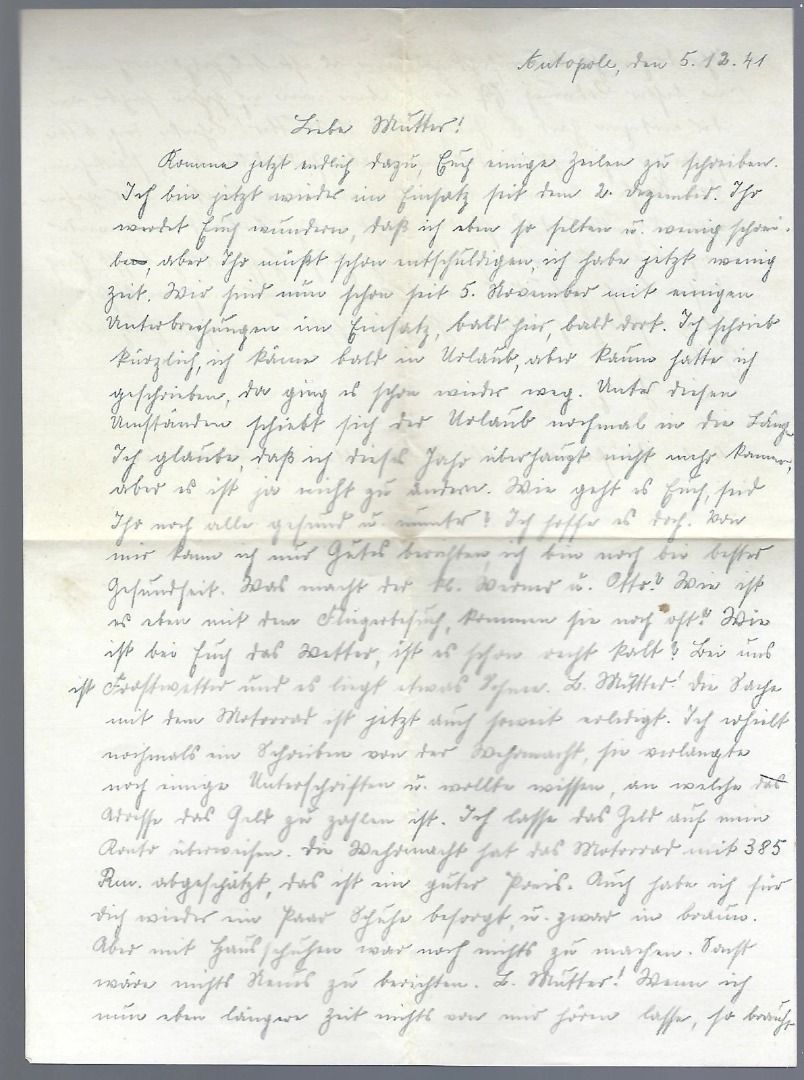 Antopole, den 5.12.41
Liebe Mutter!
Komme jetzt endlich dazu, Euch einige Zeilen zu schreiben.
Ich bin jetzt wieder im Einsatz seit dem 2. Dezember. Ihr
werdet Euch wundern, daß ich eben so selten u. wenig schrei-
be, aber Ihr müßt schon entschuldigen, ich habe jetzt wenig
Zeit. Wir sind nun schon seit 5. November mit einigen
Unterbrechungen im Einsatz, bald hier, bald dort. Ich schrieb
kürzlich, ich käme bald in Urlaub, aber kaum hatte ich
geschrieben, da ging es schon wieder weg. Unter diesen
Umständen schiebt sich der Urlaub nochmal in die Länge
Ich glaube, daß ich dieses Jahr überhaupt nicht mehr komme,
aber es ist ja nicht zu ändern. Wie geht es Euch, seid
Ihr noch alle gesund u. munter? Ich hoffe es doch. Von
mir kann ich nur Gutes berichten, ich bin noch bei bester
Gesundheit. Was macht der kl. Werner u. Otto? Wie ist
es eben mit dem Fliegerbesuch, kommen sie noch oft? Wie
ist bei Euch das Wetter, ist es schon recht kalt? Bei uns
ist Frostwetter und es liegt etwas Schnee. L. Mutter! Die Sache
mit dem Motorrad ist jetzt auch soweit erledigt. Ich erhielt
nochmals ein Schreiben von der Wehrmacht, sie verlangte
noch einige Unterschriften u. wollte wissen, an welche das
Adresse das Geld zu zahlen ist. Ich lasse das Geld auf mein
Konto überweisen. Die Wehrmacht hat das Motorrad mit 385
Rm. abgeschätzt, das ist ein guter Preis. Auch habe ich für
dich wieder ein Paar Schuhe besorgt, u. zwar in braun.
Aber mit Hausschuhen war noch nichts zu machen. Sonst
wäre nichts Neues zu berichten. L. Mutter! Wenn ich
nun eben längere Zeit nichts von mir hören lasse, so braucht